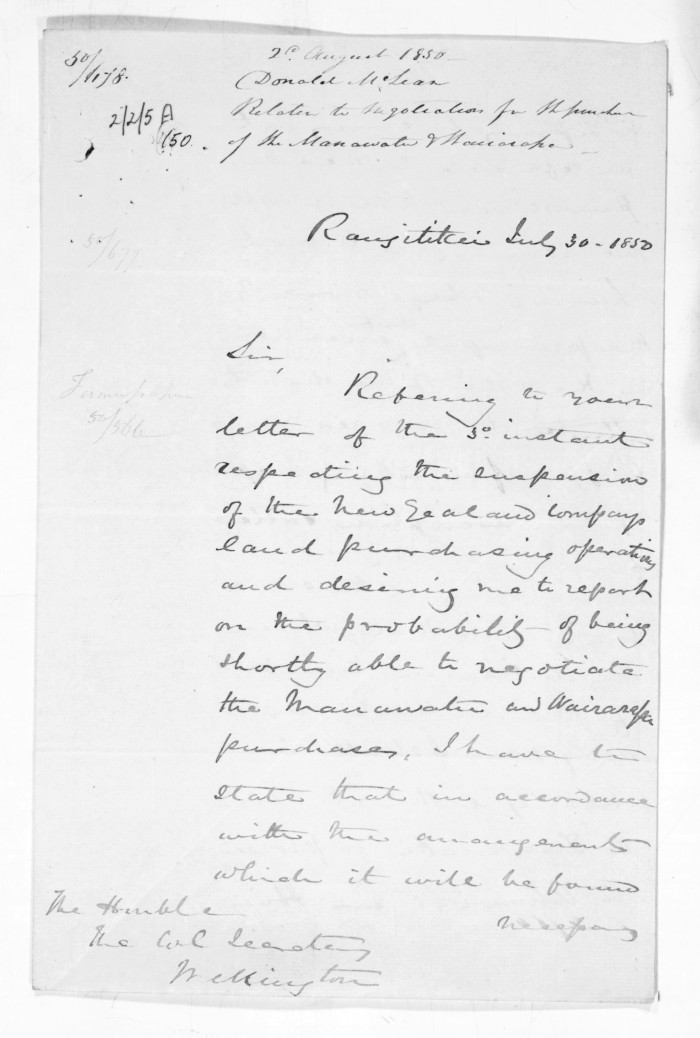 50/678.
2d. August 1850
Donald McLean
Relates to negotiations for the purchase
of the Manawatu & Wairarapa
2/2/5 A
/50.
Rangitikei July 30 - 1850
50/677
Sir,
Refering to your
letter of the 3d. instant
respecting the suspension
of the New Zealand Companys
land purchasing operations
and desiring me to report
on the probability of being
shortly able to negotiate
the Manawatu and Wairarapa
purchases, I have to
state that in accordance
with the arrangements
which it will be found
necessary
50/566
The Honble
The Col Secretary
Wellington